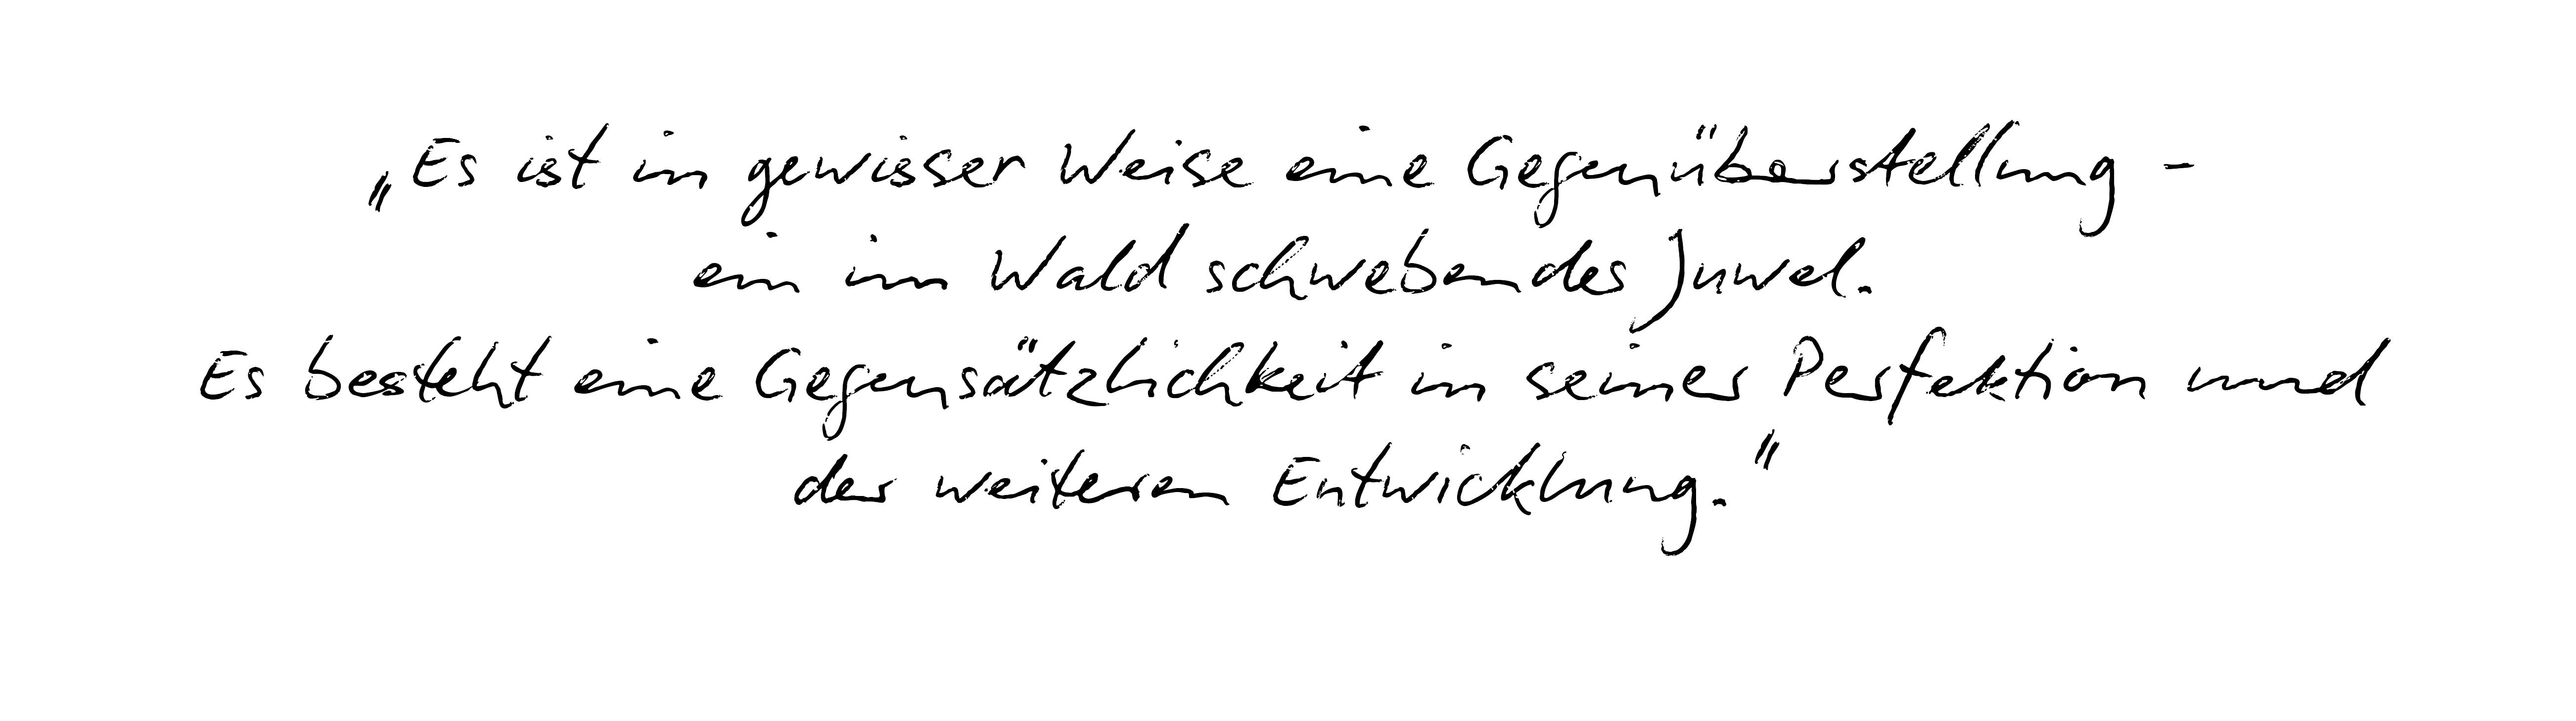 „Es ist in gewisser Weise eine Gegenüberstellung -
ein im Wald schwebendes Juwel.
Es besteht eine Gegensätzlichkeit in seiner Perfektion und
der weiteren Entwicklung."